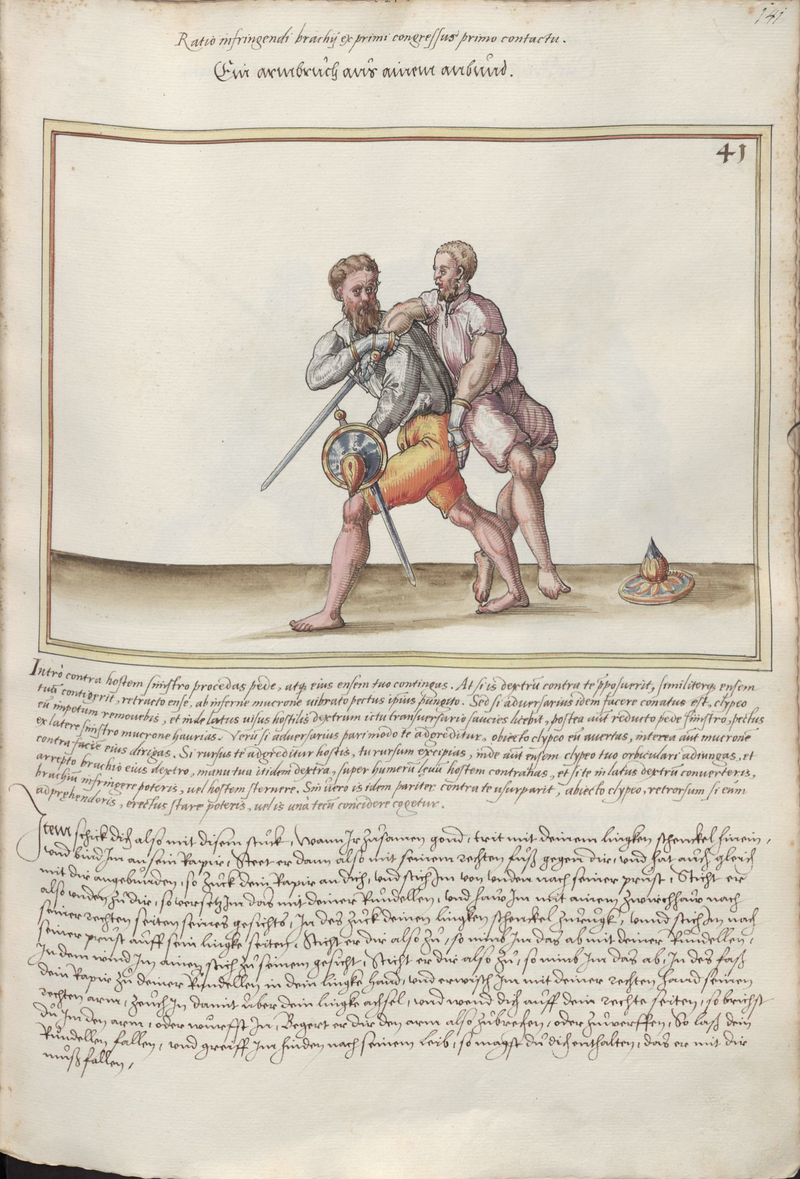 141
Ratio infringendi brachij ex primi congressus primo contactu.
Ein armbruch aus ainem anbund.
41
Intro contra hostem sinistro procedas pede, atq, eius ensem tuo contingas. At si is dextrũ contra te p̱posuerit, similiterq, ensem
tuũ contigerit, retracto ense, ab inferne mucrone vibrato pectus ipsius pungito. Sed si aduersarius idem facere conatus est, clypeo
eũ impetum remouebis, et inde latus visus hostilis dextrum ictu transuersario saucies licebit, postea aũt reducto pede sinistro, pectus
ex latere sinistro mucrone haurias. Verũ si aduersarius pari modo te adgreditur, obiecto clypeo eũ auertas, interea aũt mucronẽ
contra facië eius dirigas. Si rursus te adgreditur hostis, tu rursum excipias, inde aut ensem clypeo tuo orbiculari adiungas, et
arrepto brachio eius dextro, manu tua itidem dextra, super humerũ leuũ hostem contrahas, et si te in latus dextrũ conuerteris,
brachiũ infringere poteris, vel hostem sternere. Sin vero is idem pariter contra te vsurparit, abiecto clypeo, retrorsum si eum
adpræhenderis, erectus stare poteris, vel is una tecũ concidere cogetur.
Item schick dich also mit disem stuk, Wann Ir zusamen gond, trit mit deinem lingken schenckel hinein,
vnd bind Im an sein Rapir, Steet er dann also mit seinem rechten fuß gegen dir, vnd hat auch gleich
mit dir angebunden, so zuck dein Rapir an dich, vnd stich Im von vnden nach seiner prust, Sticht er
also vnden zu dir, so versetz Im das mit deiner Rundellen, vnd haw Im mit ainem zwirchhaw nach
seiner rechten seiten seines gesichts, In des zuck deinen lingken schenckel zurugk, vnnd stich Im nach
seiner prust auff sein lingke seiten, Sticht er dir also zu, so nimb Im das ab mit deiner Rundellen,
In dem wind Im ainen stich zu seinem gesicht, Sticht er dir also zu, so nimb Im das ab, In des faß
dein Rapir zu deiner Rundellen in dein lingke hand, vnd erwisch Im mit deiner rechten hand seinen
rechten arm, zeuch In damit uber dein lingke achsel, vnd wend dich auff dein rechte seiten, so brichst
du Im den arm, oder wurffst In, Begert er dir den arm also zubrechen, oder zuwerffen, So laß dein
Rundellen fallen, vnd greiff Im hinden nach seinem Leib, so magst du dich enthalten, das er mit dir
muß fallen,